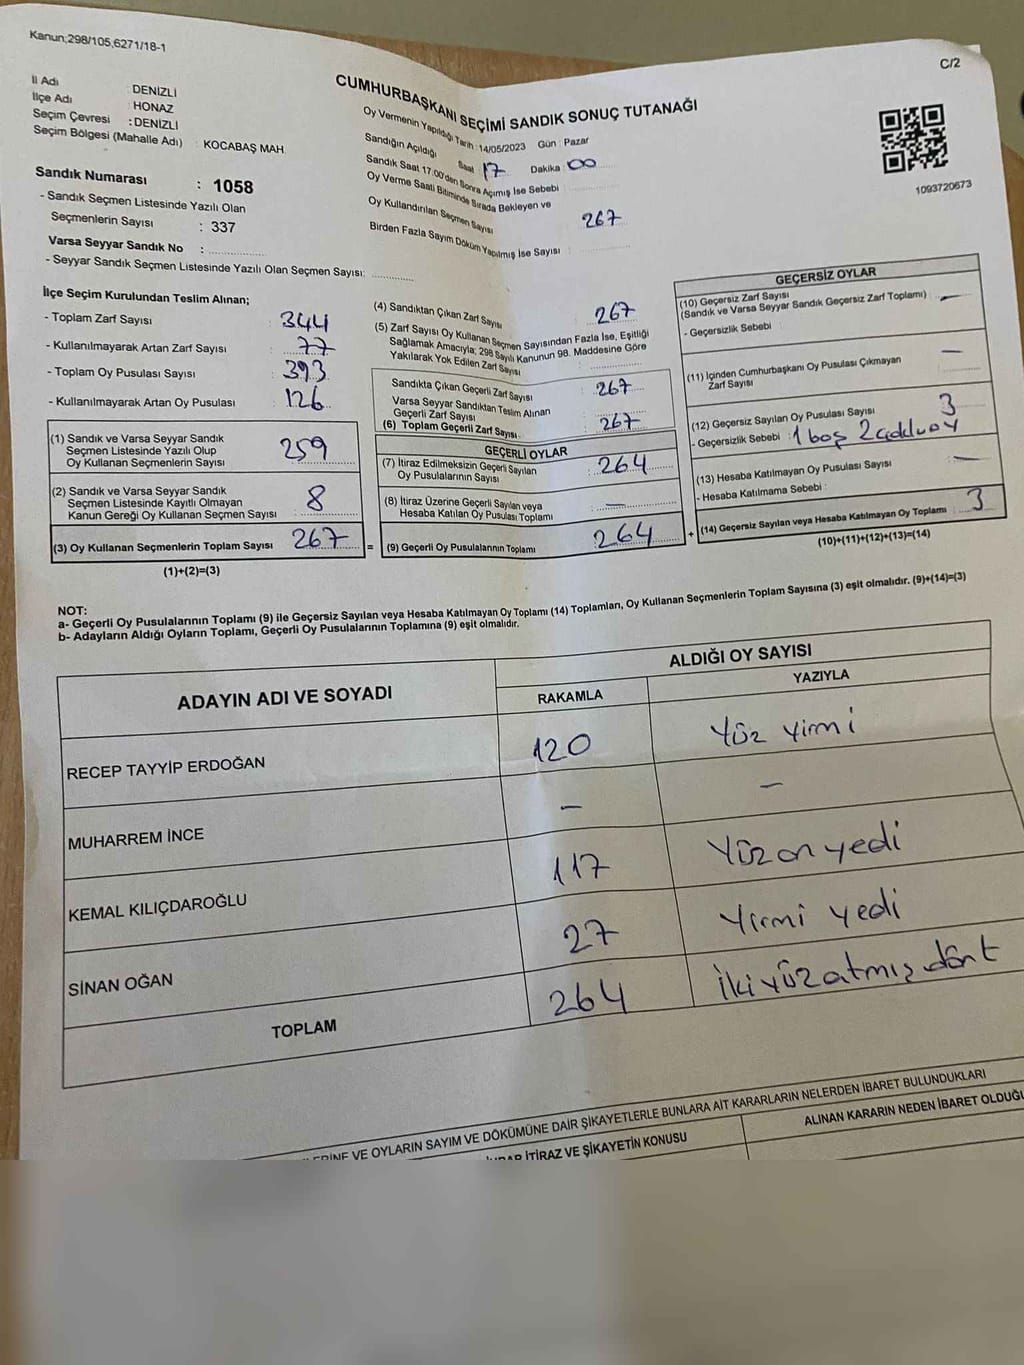 Kanun;298/105,6271/18-1
C/2
İl Adı : DENİZLİ
İlçe Adı : HONAZ
Seçim Çevresi : DENİZLİ
Seçim Bölgesi (Mahalle Adı) : KOCABAŞ MAH.
Sandık Numarası : 1058
- Sandık Seçmen Listesinde Yazılı Olan
Seçmenlerin Sayısı : 337
Varsa Seyyar Sandık No :
- Seyyar Sandık Seçmen Listesinde Yazılı Olan Seçmen Sayısı:
CUMHURBAŞKANI SEÇİMİ SANDIK SONUÇ TUTANAĞI
Oy Vermenin Yapıldığı Tarih :14/05/2023 Gün : Pazar
Sandığın Açıldığı Saat : 17 Dakika : 00
Sandık Saat 17.00'den Sonra Açımış İse Sebebi :
Oy Verme Saati Bitiminde Sırada Bekleyen ve
Oy Kullandırılan Seçmen Sayısı : 267
Birden Fazla Sayım Döküm Yapılmış İse Sayısı :
1093720673
İlçe Seçim Kurulundan Teslim Alınan;
- Toplam Zarf Sayısı : 344
- Kullanılmayarak Artan Zarf Sayısı : 77
- Toplam Oy Pusulası Sayısı : 393
- Kullanılmayarak Artan Oy Pusulası : 126
(1) Sandık ve Varsa Seyyar Sandık
Seçmen Listesinde Yazılı Olup
Oy Kullanan Seçmenlerin Sayısı : 259
(2) Sandık ve Varsa Seyyar Sandık
Seçmen Listesinde Kayıtlı Olmayan
Kanun Gereği Oy Kullanan Seçmen Sayısı : 8
(3) Oy Kullanan Seçmenlerin Toplam Sayısı : 267 =
(1)+(2)=(3)
(4) Sandıktan Çıkan Zarf Sayısı : 267
(5) Zarf Sayısı Oy Kullanan Seçmen Sayısından Fazla İse, Eşitliği
Sağlamak Amacıyla; 298 Sayılı Kanunun 98. Maddesine Göre
Yakılarak Yok Edilen Zarf Sayısı :
Sandıkta Çıkan Geçerli Zarf Sayısı : 267
Varsa Seyyar Sandıktan Teslim Alınan
Geçerli Zarf Sayısı :
(6) Toplam Geçerli Zarf Sayısı : 267
GEÇERLİ OYLAR
(7) İtiraz Edilmeksizin Geçerli Sayılan
Oy Pusulalarının Sayısı : 264
(8) İtiraz Üzerine Geçerli Sayılan veya
Hesaba Katılan Oy Pusulası Toplamı : —
(9) Geçerli Oy Pusulalarının Toplamı : 264 +
GEÇERSİZ OYLAR
(10) Geçersiz Zarf Sayısı
(Sandık ve Varsa Seyyar Sandık Geçersiz Zarf Toplamı) : —
- Geçersizlik Sebebi :
(11) İçinden Cumhurbaşkanı Oy Pusulası Çıkmayan
Zarf Sayısı : —
(12) Geçersiz Sayılan Oy Pusulası Sayısı : 3
- Geçersizlik Sebebi : 1 boş 2
(13) Hesaba Katılmayan Oy Pusulası Sayısı : —
- Hesaba Katılmama Sebebi :
(14) Geçersiz Sayılan veya Hesaba Katılmayan Oy Toplamı : 3
(10)+(11)+(12)+(13)=(14)
NOT:
a- Geçerli Oy Pusulalarının Toplamı (9) ile Geçersiz Sayılan veya Hesaba Katılmayan Oy Toplamı (14) Toplamları, Oy Kullanan Seçmenlerin Toplam Sayısına (3) eşit olmalıdır. (9)+(14)=(3)
b- Adayların Aldığı Oyların Toplamı, Geçerli Oy Pusulalarının Toplamına (9) eşit olmalıdır.
ADAYIN ADI VE SOYADI
ALDIĞI OY SAYISI
RAKAMLA YAZIYLA
RECEP TAYYİP ERDOĞAN 120 Yüz yirmi
MUHARREM İNCE – –
KEMAL KILIÇDAROĞLU 117 Yüz on yedi
SİNAN OĞAN 27 Yirmi yedi
TOPLAM 264 İki yüz atmış dört
VE OYLARIN SAYIM VE DÖKÜMÜNE DAİR ŞİKAYETLERLE BUNLARA AİT KARARLARIN NELERDEN İBARET BULUNDUKLARI
İTİRAZ VE ŞİKAYETİN KONUSU
ALINAN KARARIN NEDEN İBARET OLDUĞU